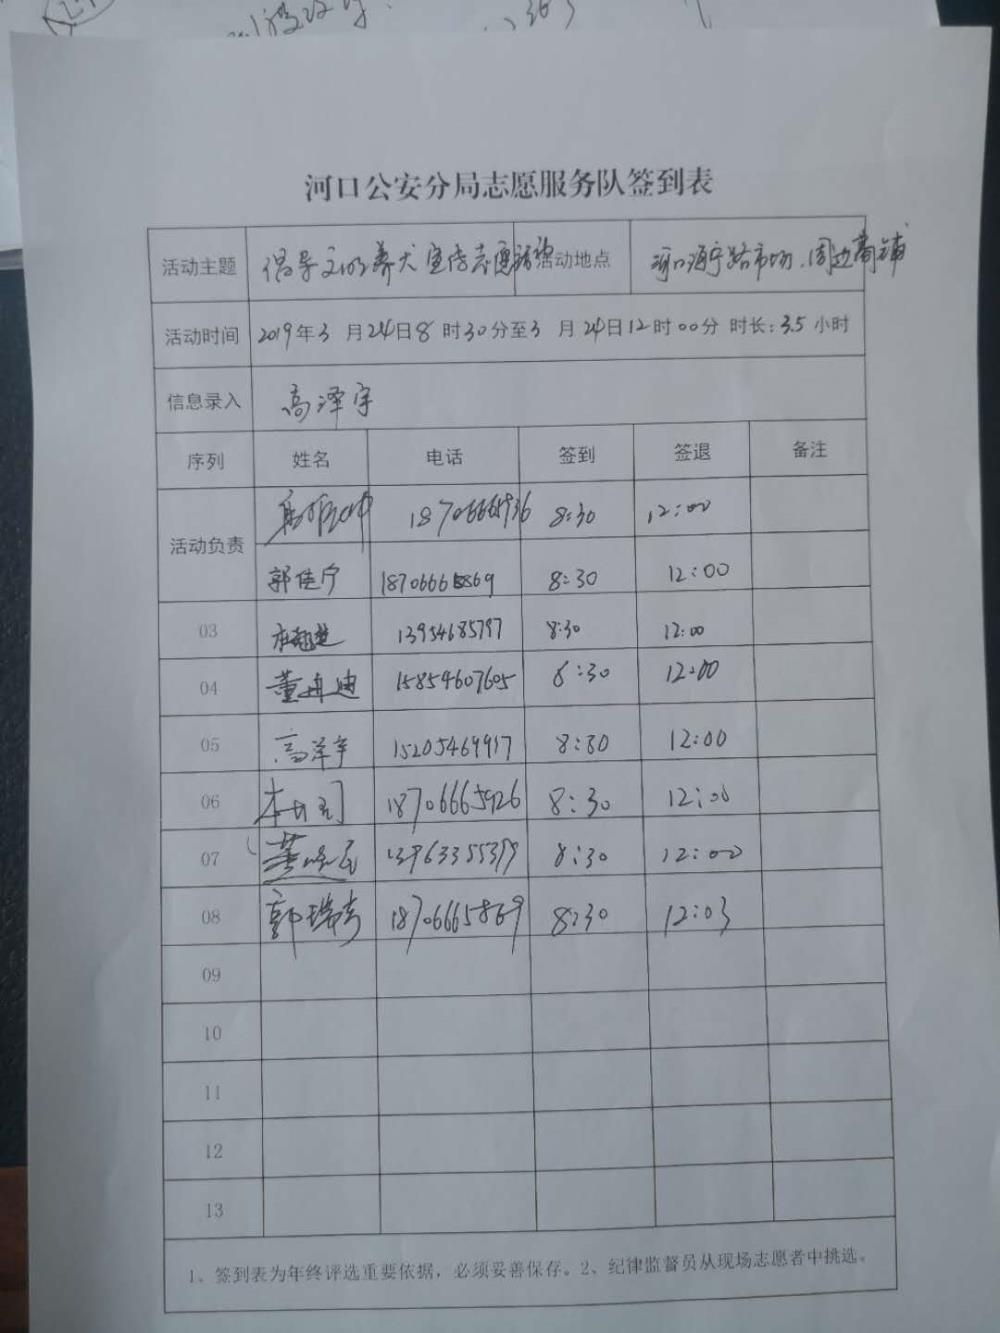 河口公安分局志愿服务队签到表
活动主题 倡导文明养犬宣传志愿活动 活动地点 河口海宁路市场、周边商铺
活动时间 2019年3月24日8时30分至3月24日12时00分 时长:3.5小时
信息录入 高泽宇
序列 姓名 电话 签到 签退 备注
活动负责
18706665936 8:30 12:00
郭佳宁 18706665869 8:30 12:00
03 13954685797 8:30 12:00
04 董冉迪 15854607605 8:30 12:00
05 高泽宇 15205469917 8:30 12:00
06 18706665926 8:30 12:00
07 8:30 12:00
08 郭瑞芳 18706665869 8:30 12:03
09
10
11
12
13
1、签到表为年终评选重要依据，必须妥善保存。2、纪律监督员从现场志愿者中挑选。